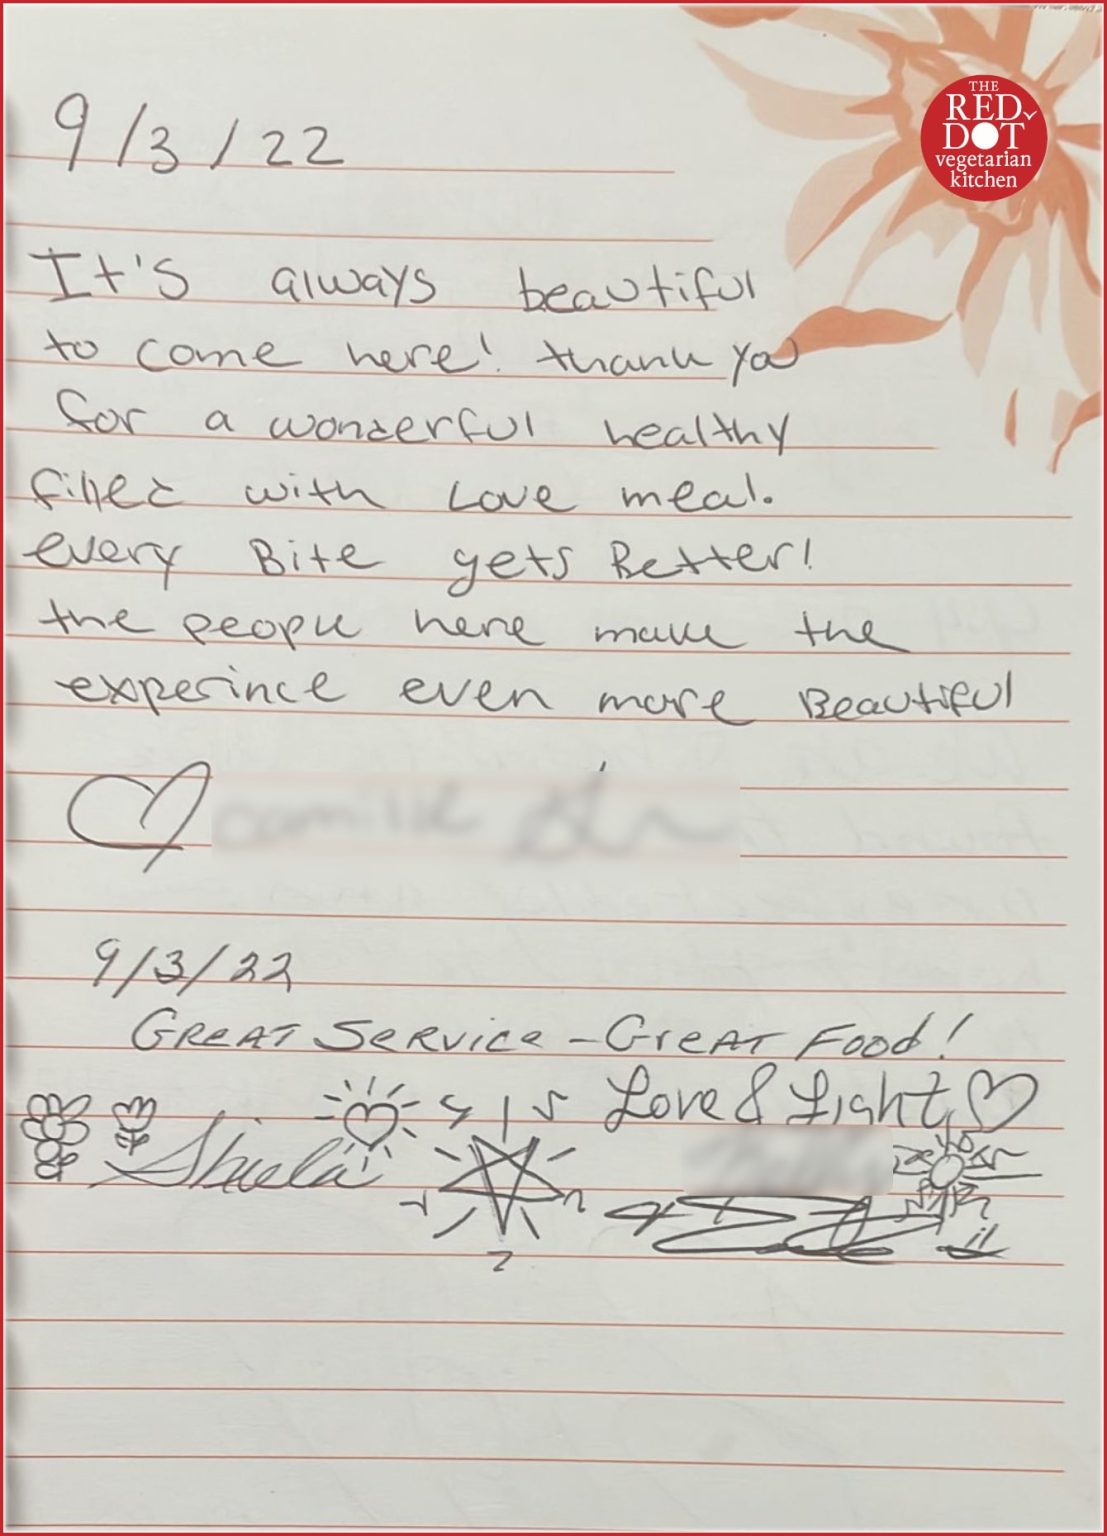 THE
RED
DOT
vegetarian
kitchen
9/3/22
It's always beautiful
to come here! thank you
for a wonderful healthy
filled with Love meal.
every Bite gets Better!
the people here make the
experince even more Beautiful
9/3/22
GREAT SERVICE - GREAT FOOD!
Love & Light
Shiela